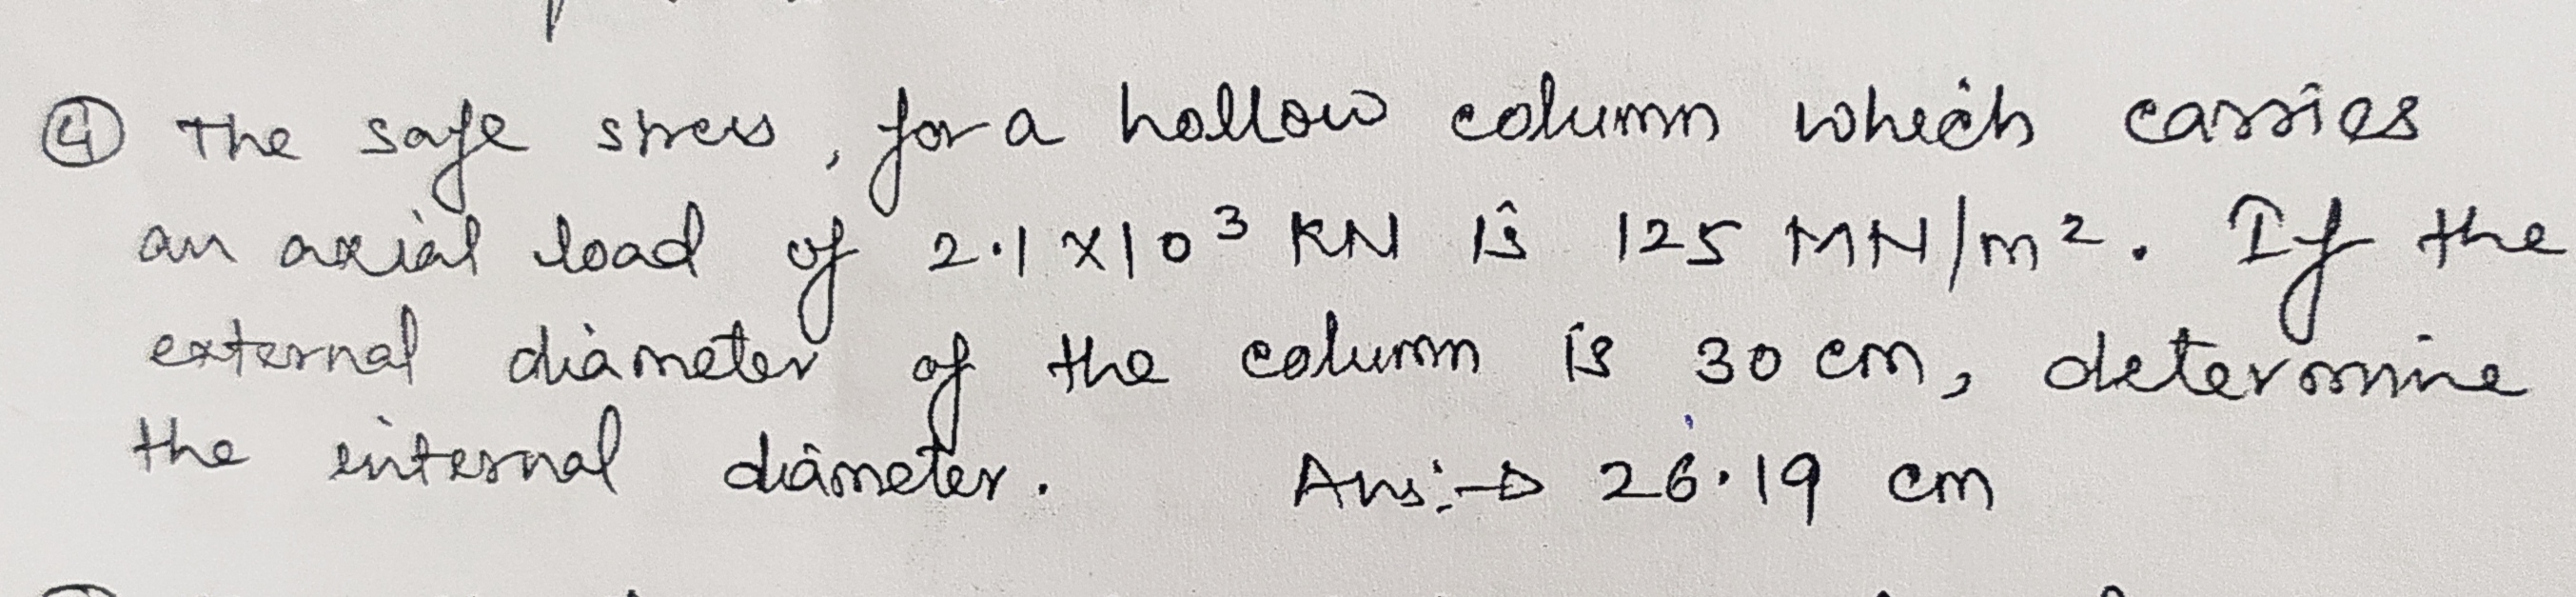 ④ The safe stress, for a hollow column which carries
an axial load of 2.1 x 10³ KN is 125 MN/m². If the
external diameter of the column is 30 cm, determine
the internal diameter. Ans:→ 26.19 cm